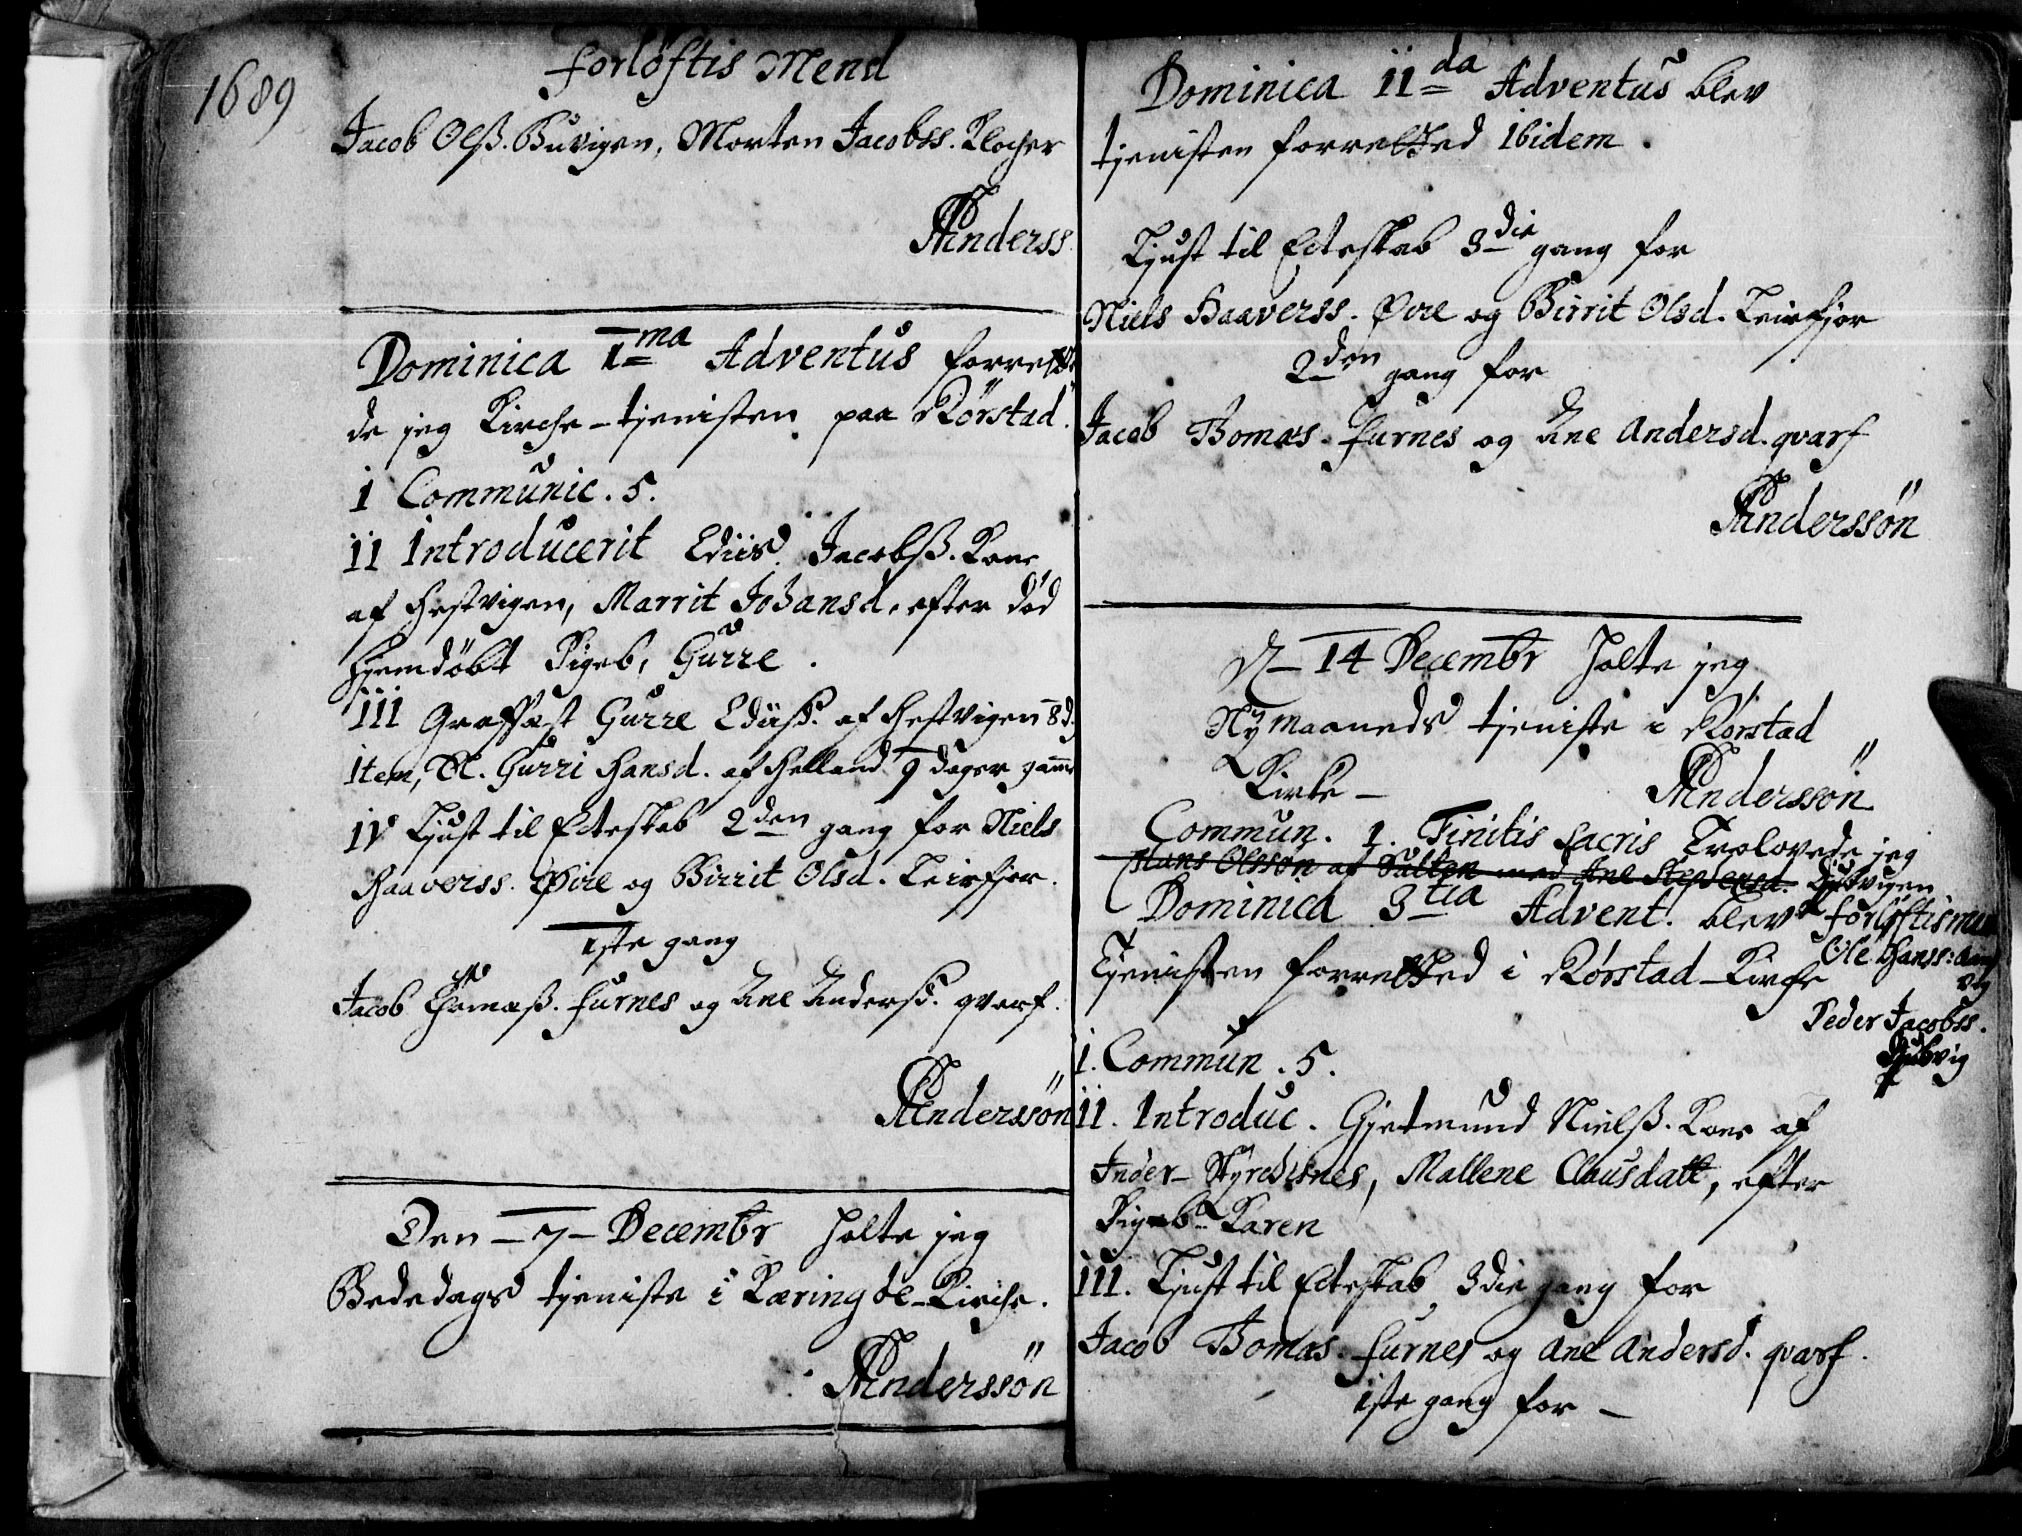 1689
forløftis Mend
Jacob Olß. Buvigen, Morten Jacobss. Klocher
Anderss.
Dominica Ima Adventus forrett
de jeg Kirche-tjenisten paa Rörstad.
I Communic. 5.
II Introducerit Ediis Jacobß. Kone
af Hestvigen, Marrit Johansd. efter död
Hjemdöbt Pigeb, Gurre.
III Graffæst Gurre Ediiß. af Hestvigen 8 d.
Item, Gurri Hansd. af Helland 9 dager gamm
IV Liust til Ecteskab 2den gang for Niels
Haaverss. Øire og Birrit Olsd. Leirfjor.
1ste gang
Jacob Tomæß. furnes og Ane Anderß. qvarf.
Anderssön
Den - 7 - Decembr holte jeg
Bededags tjeniste i Kæringöe-Kirche.
Anderssön
Dominica IIda Adventus blev
tjenisten forretted Ibidem.
Liust til Ecteskab 3die gang for
Niels Haaverss. Øire og Birrit Olsd. Leirfjor
2den gang for
Jacob Tomæs. furnes og Ane Andersd. qvarf
Anderssön
D - 14 Decembr holte jeg
Nÿ maaneds tjeniste i Rörstad
Kirke -
Anderssön
Commun. 1. Finitis sacris Trolovede jeg
Hans Olssön af Salten med Ane Stephensd.
Dominica 3tia Advent. blev
forløftismen
Tjenisten forretted i Rörstad-Kirche
Ole Hanss:
Peder Jacobss.
I. Commun. 5.
II. Introduc. Gjetmund Nielß. Kone af
Inder-Styrckisnes, Mallene Clausdatt, efter
Pigeb. Karen
III. Liust til Ecteskab 3die gang for
Jacob Tomæs. furnes og Ane Andersd. qvarf.
1ste gang for -